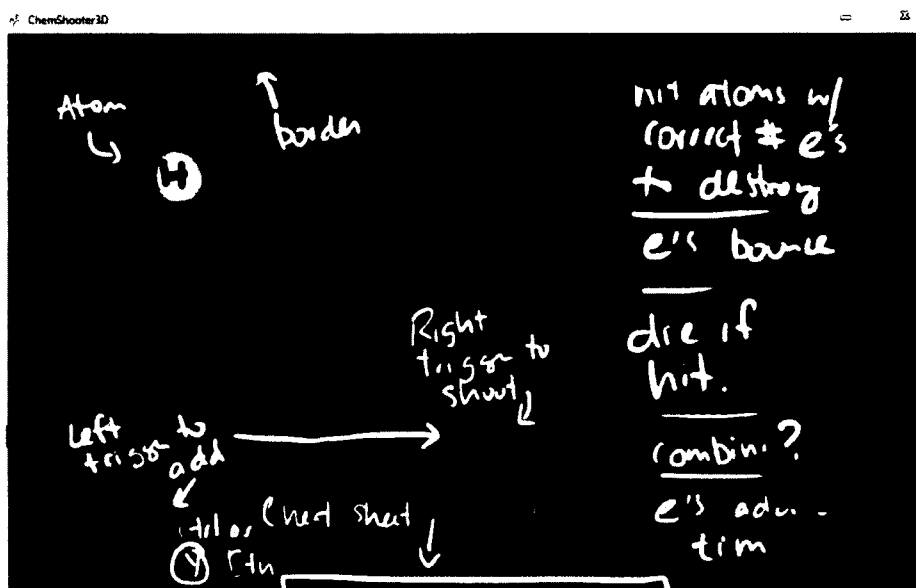 ChemShooter3D
Atom
border
H
hit atoms w/
correct # e's
to destroy
e's bounce
die if
hit.
combine?
e's
tim
Right
trigger to
shoot
Left
trigger to
add
Cheat sheet
Y